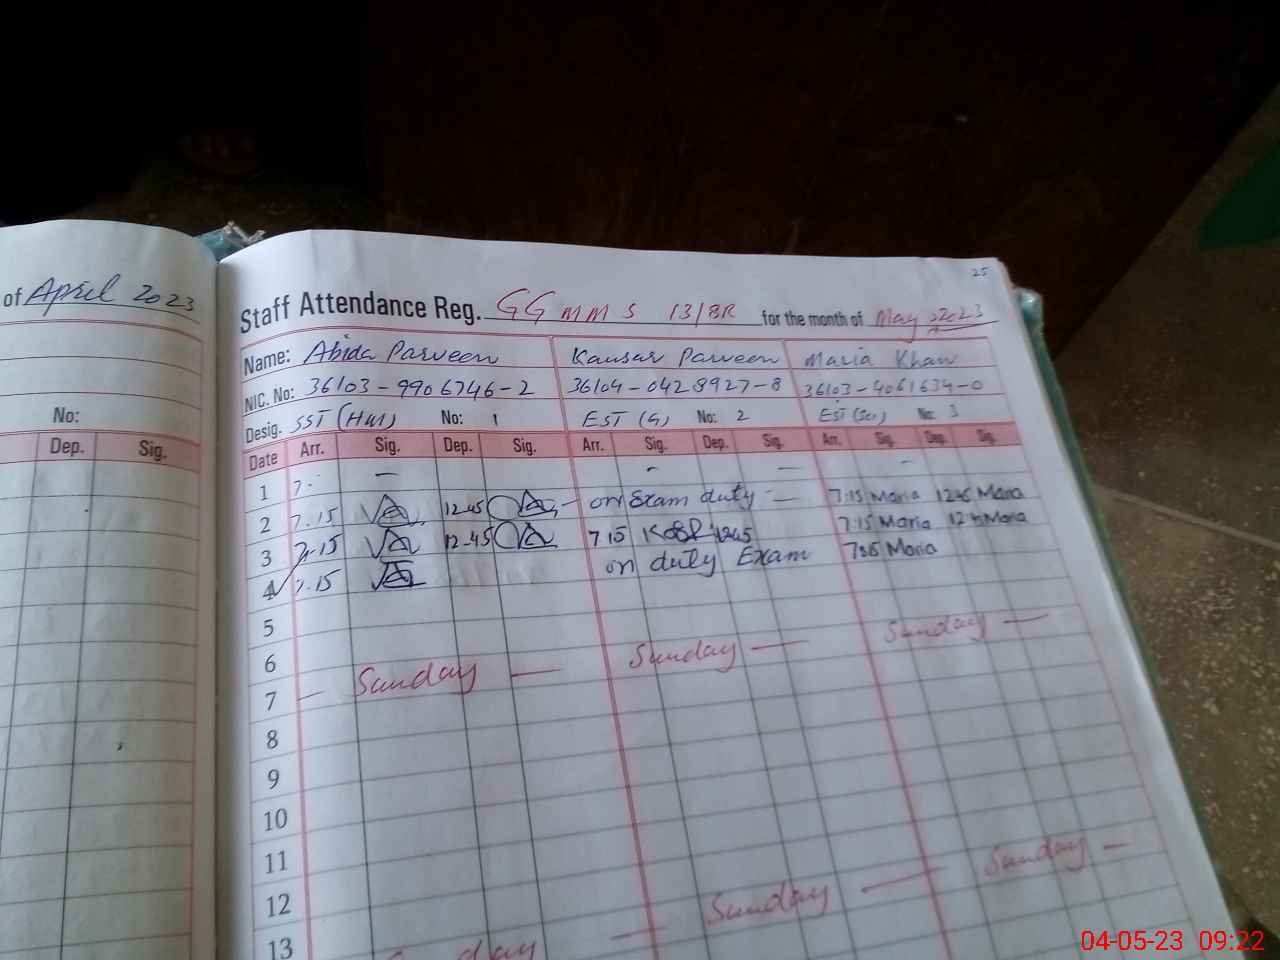 of April 2023
No:
Dep. Sig.
25
Staff Attendance Reg. GGMMS 13/8R for the month of May 2023
Name: Abida Parveen Kausar Parveen Maria Khan
NIC. No: 36103-9906746-2 36104-0428927-8 36103-4061634-0
Desig. SST (HM) No: 1 EST (G) No: 2 EST (Sci) No: 3
Date Arr. Sig. Dep. Sig. Arr. Sig. Dep. Sig. Arr. Sig. Dep. Sig.
1 7. — - — -
2 7.15 12.45 on Exam duty — 7:15 Maria 12:45 Maria
3 7.15 12-45 7 15 1245 7:15 Maria 12:45 Maria
4 7.15 on duty Exam Maria
5
6
7 — Sunday — Sunday — Sunday —
8
9
10
11
12
13 Sunday — Sunday — Sunday —
04-05-23 09:22